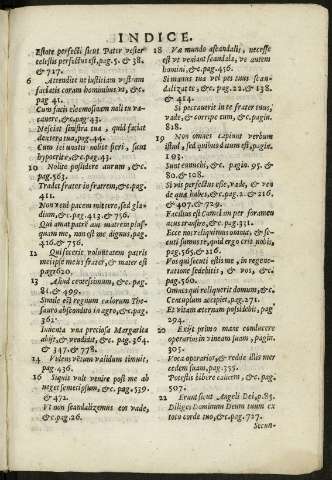 INDICE.
Estote perfecti sicut Pater vester
celestis perfectus est, pag. 5. & 38.
& 727.
6 Attendite ne iustitiam vestram
faciatis coram hominibus vt, &c
pag 41.
Cum facis eleemosinam noli tu va-
cauere, &c. pag 43.
Nesciat sinistra tua, quid faciat
dextera tua, pag. 44.
Cum ieiunatis nolite fieri, sunt
hypocritæ, &c. pag. 43.
10 Nolite possidere aurum, &c.
pag. 563.
Tradet frater in fratrem, &c. pag.
411.
Non veni pacem mittere, sed gla-
dium, &c. pag. 413. & 756.
Qui amat patrem aut matrem plusquam
me, non est me dignus, pag.
416. & 756.
12 Qui fecerit voluntatem patris
mei ipse meus frater, & mater est
pag 620.
13 Aliud centesimum, &c. pag.
81. & 499.
Simile est regnum cælorum The-
sauro abscondito in agro, &c. pag.
362.
Inuenta vna preciosa Margarita
abijt, & vendidit, &c. pag. 364.
& 347. & 778.
14 Videns ventum validum timuit,
pag. 436.
16 Siquis vult venire post me ab
neget semetipsum, &c pag. 539.
& 472.
Vt non scandalizemus eos vade,
&c. pag. 26.
18 Væ mundo a scandalis, necesse
est vt veniant scandala, væ autem
homini, &c. pag. 456.
Si manus tua vel pes tuus scan-
dalizat te, &c. pag. 22. & 138.
& 414.
Si peccauerit in te frater tuus,
vade, & corripe eum, &c. pagin.
818.
19 Non omnes capiunt verbum
istud, sed quibus datum est, pagin.
193.
Sunt eunuchi, &c. pagin. 95. &
80. & 108.
Si vis perfectus esse, vade, & ven
de quæ habes, &c. pag. 2. & 216.
& 407. & 729.
Facilius est Camelum per foramen
acus transire, &c. pag. 331.
Ecce nos reliquimus omnia, & se-
cuti sumus te, quid ergo erit nobis,
pag. 565. & 216.
Vos qui secuti estis me, in regene-
ratione sedebitis, & vos, &c.
pag. 560.
Omnis qui reliquerit domum, &c.
Centuplum accipiet, pag. 271.
Et vitam æternam possidebit, pag
294.
20 Exijt primo mane conducere
operarios in vineam suam, pagin.
305.
Voca operarios, & redde illis mer
cedem suam, pag. 355.
Potestis bibere calicem, &c. pag.
507.
22 Erunt sicut Angeli Dei, p. 85.
Diliges Dominum Deum tuum ex
toto corde tuo, &c. pag. 727.
Secun-